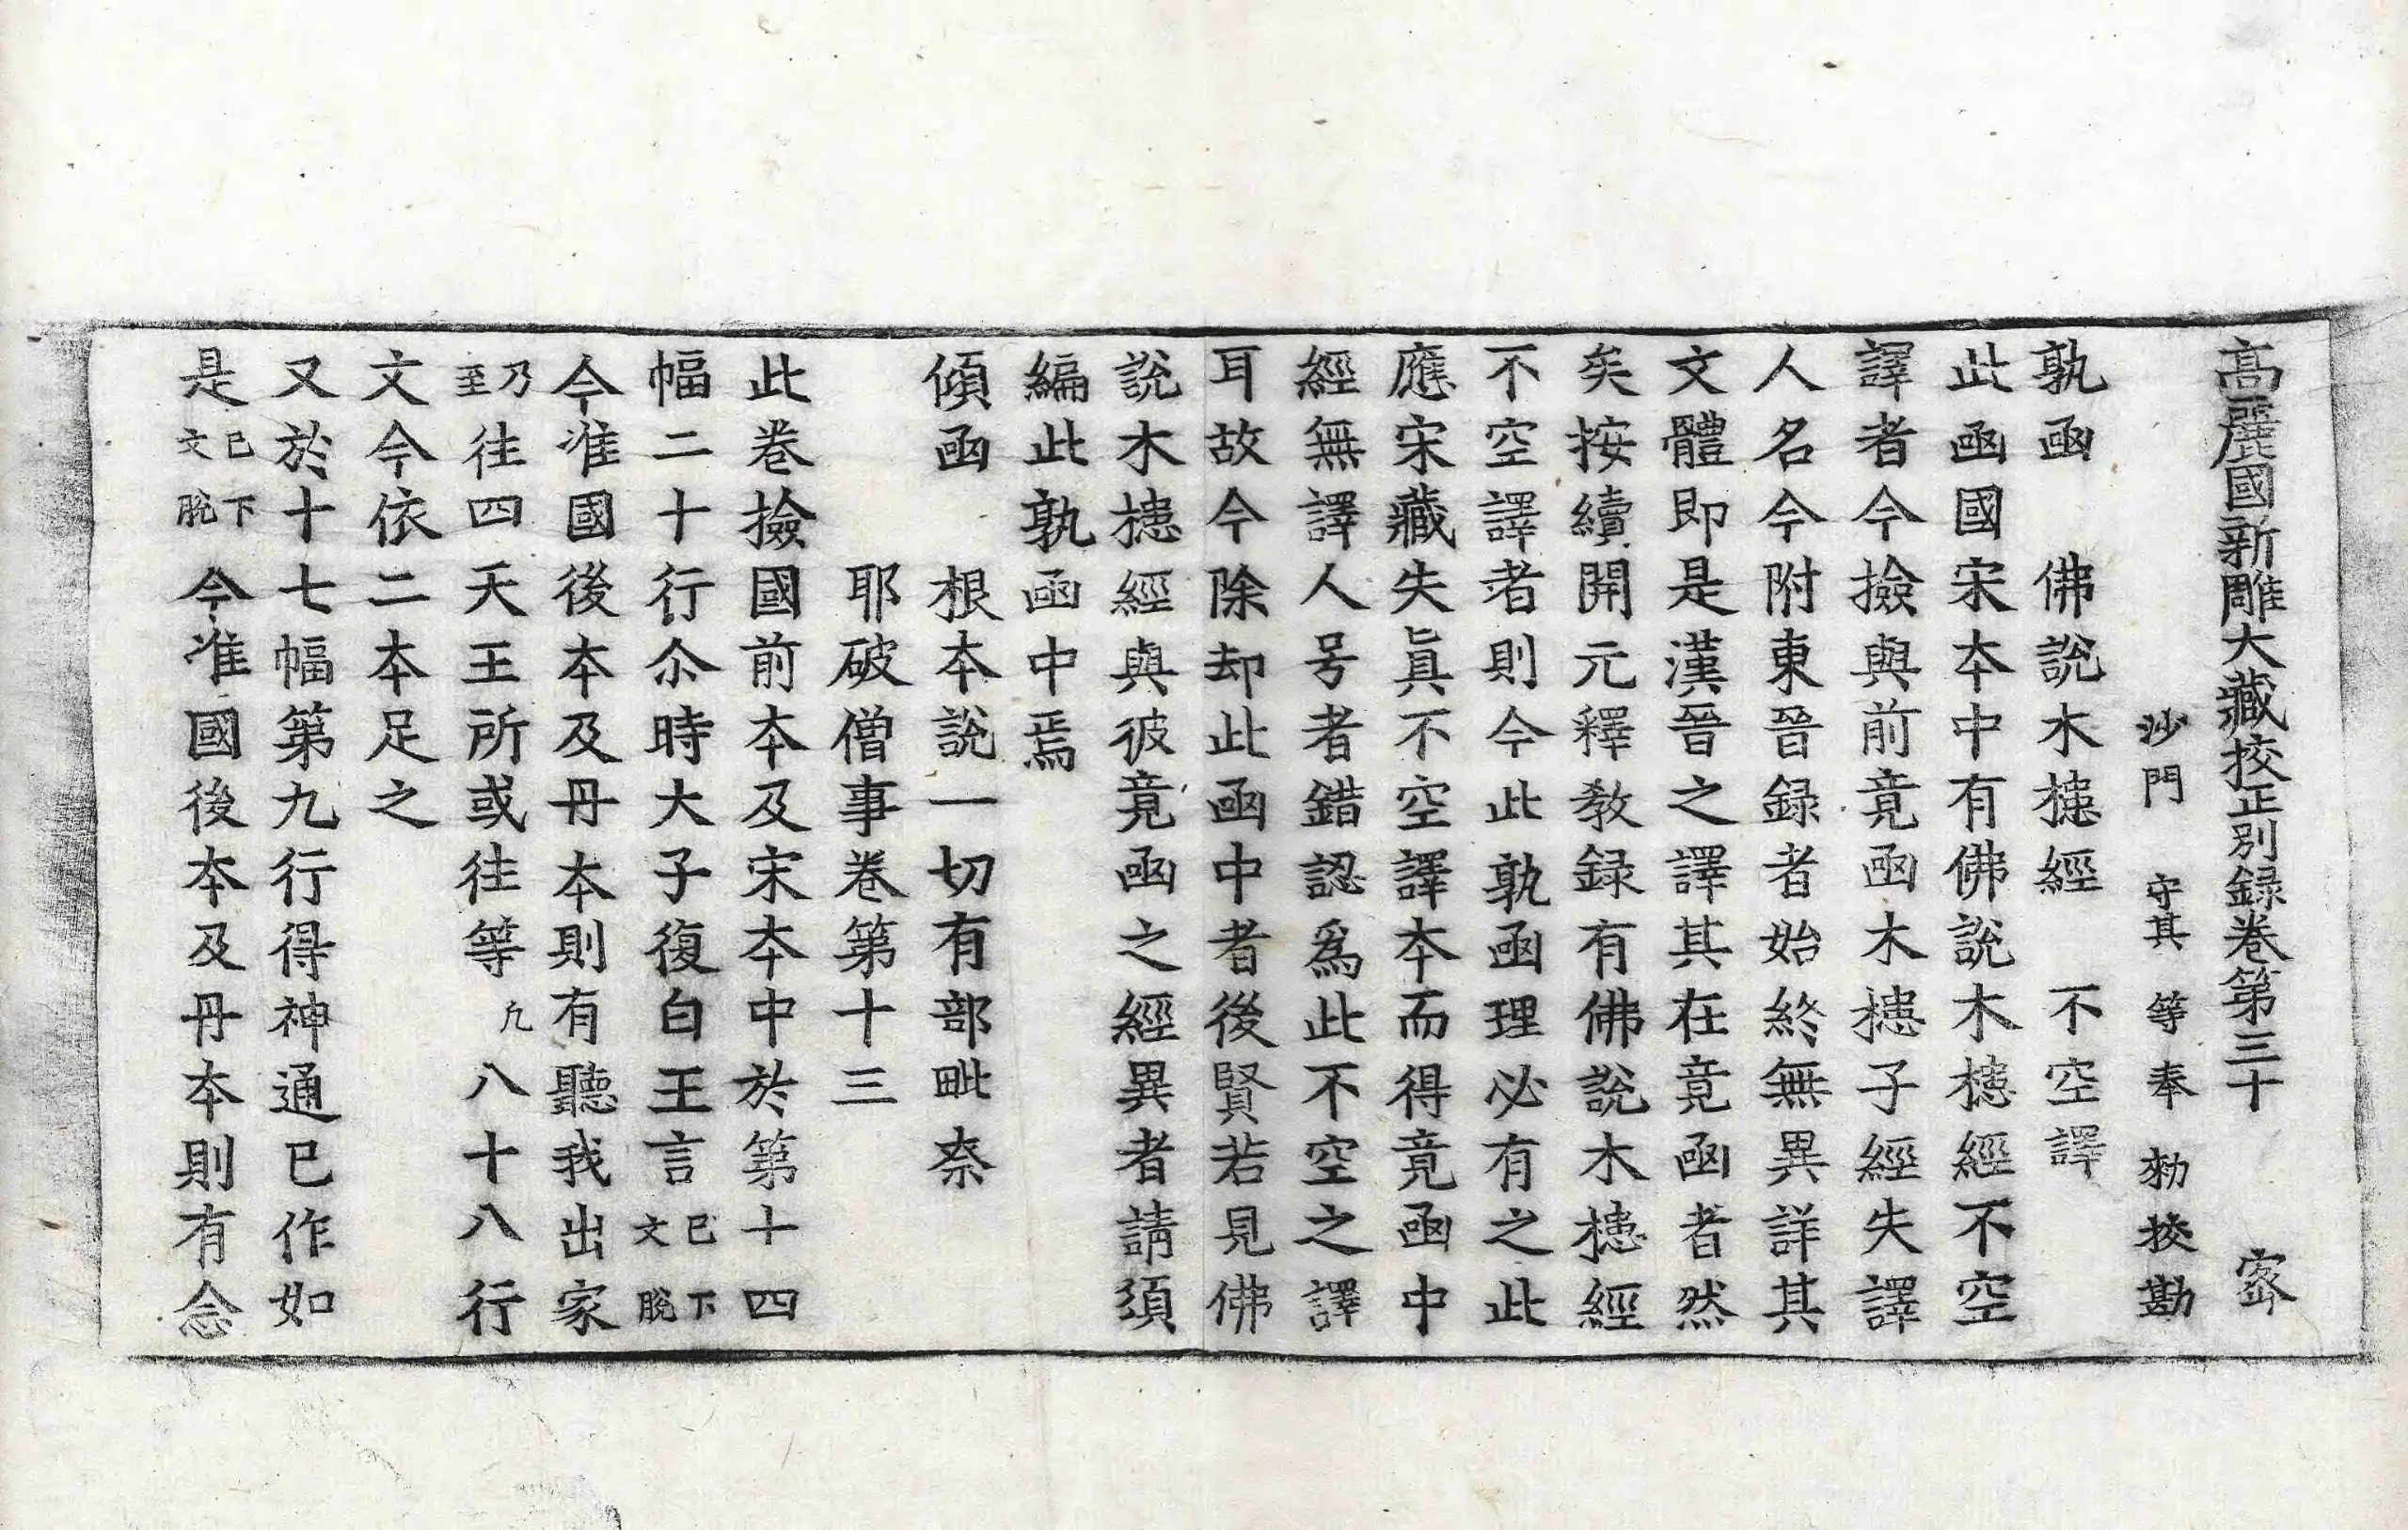 高麗國新雕大藏挍正別録卷第三十 密
沙門 守其 等 奉 勑挍勘
孰函 佛說木槵經 不空譯
此函國宋本中有佛說木槵經不空
譯者今撿與前竟函木槵子經失譯
人名今附東晉録者始終無異詳其
文體即是漢晉之譯其在竟函者然
矣按續開元釋教録有佛說木槵經
不空譯者則今此孰函理必有之此
應宋藏失眞不空譯本而得竟函中
經無譯人号者錯認爲此不空之譯
耳故今除却此函中者後賢若見佛
說木槵經與彼竟函之經異者請須
編此孰函中焉
傾函 根本說一切有部毗奈
耶破僧事卷第十三
此卷撿國前本及宋本中於第十四
幅二十行尒時大子復白王言已下文脫
今准國後本及丹本則有聽我出家
乃至往四天王所或往等凢八十八行
文今依二本足之
又於十七幅第九行得神通已作如
是已下文脫今准國後本及丹本則有念